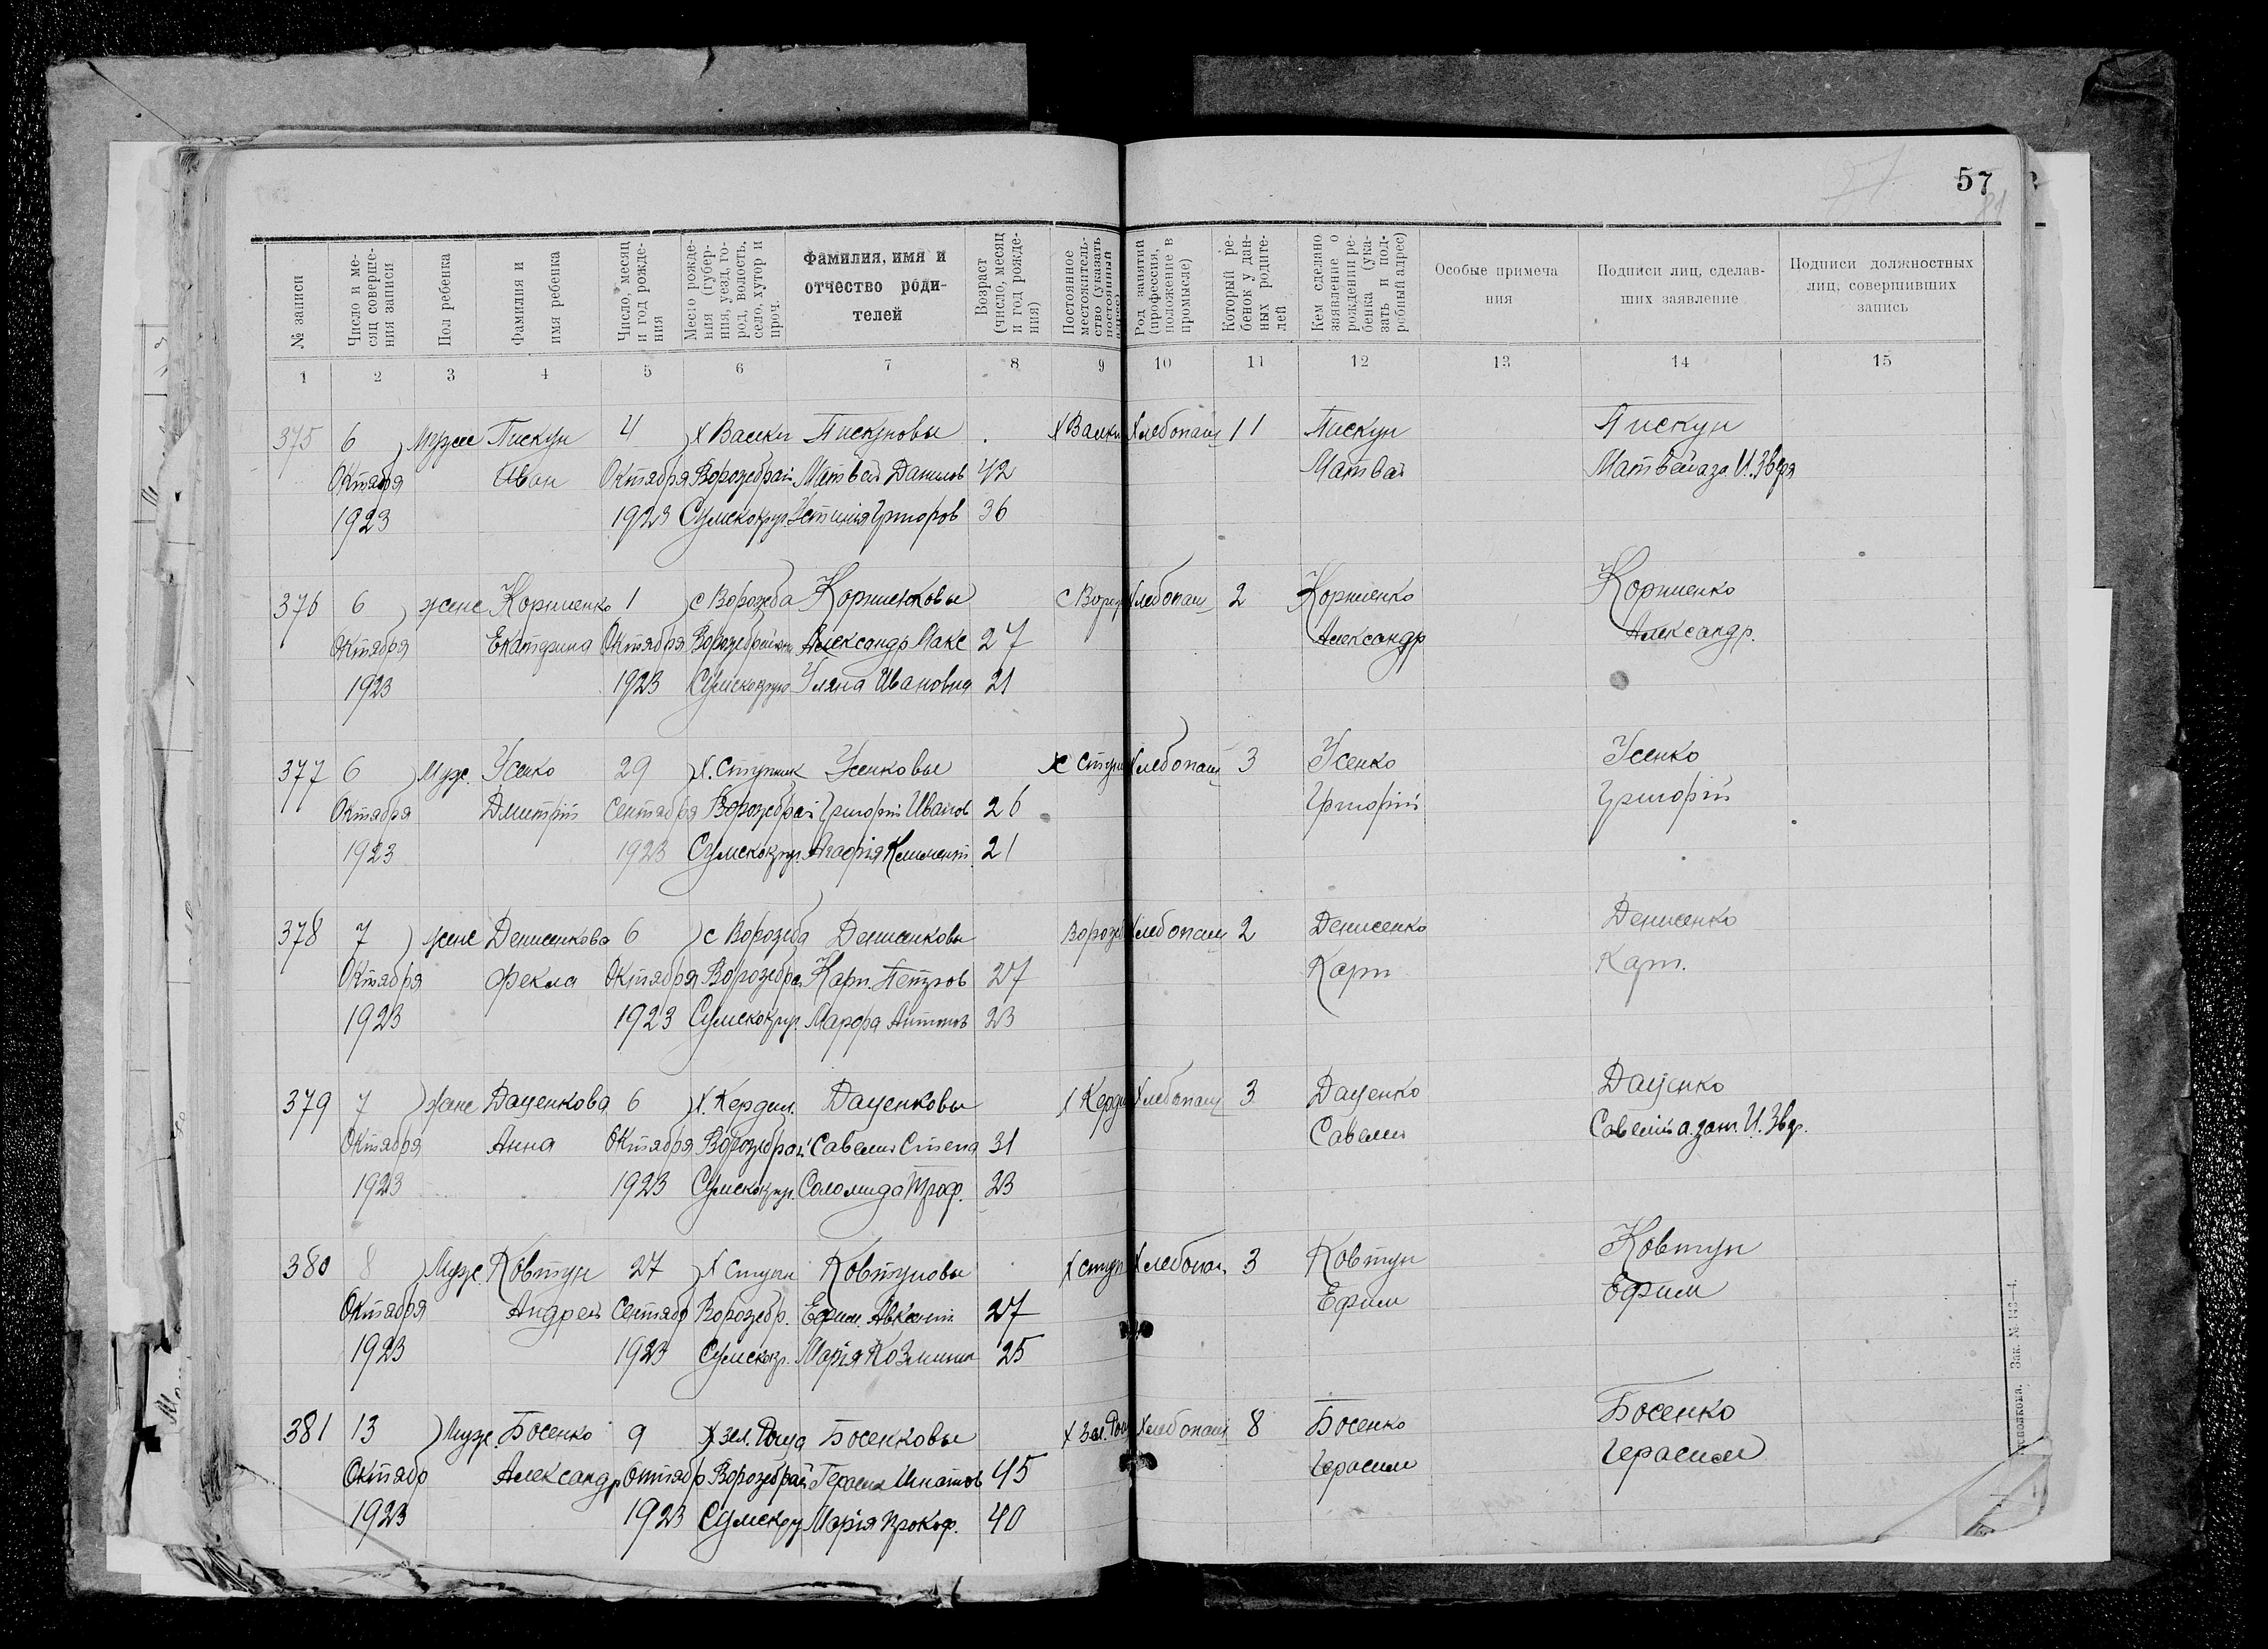 57
№ записи
Число и месяц совершения записи
Пол ребенка
Фамилия и имя ребенка
Число, месяц и год рождения
Место рождения (губерния, уезд, город, волость, село, хутор и проч.
Фамилия, имя и отчество родителей
Возраст (число, месяц и год рождения)
Постоянное местожительство (указать постоянный адрес)
Род занятий (профессия, положение в промысле)
Который ребенок у данных родителей
Кем сделано заявление о рождении ребенка (указать и подробный адрес)
Особые примечания
Подписи лиц, сделавших заявление
Подписи должностных лиц, совершивших запись
1 2 3 4 5 6 7 8 9 10 11 12 13 14 15
375 6 Муж Пискун 4 х Валки Пискуновы х Валки Хлебопаш 11 Пискун Пискун
Октября Иван Октября Ворожбрай Матвей Данилов 42 Матвей Матвей
1923 1923 Сумскокруг Устиния Григоров 36
376 6 женс Корниенко 1 с Ворожба Корниенковы с Ворож Хлебопаш 2 Корниенко Корниенко
Октября Екатерина Октября Александр Макс 27 Александр Александр.
1923 1923 Сумскокруг Уляна Ивановна 21
377 6 Муж. Усенко 29 х. Ступник Усенковы х Ступ Хлебопаш 3 Усенко Усенко
Октября Дмитрій Сентября Ворожбрай Григорій Иванов 26 Григорій Григорій
1923 1923 Сумскокруг. Агафія Климент. 21
378 7 женс Денисенкова 6 с Ворожба Денисенковы Ворожб Хлебопаш 2 Денисенко Денисенко
Октября Фекла Октября Ворожбра Карп Петров 27 Карп Карп.
1923 1923 Сумскокруг. Марфа Антонов 23
379 7 женс Даценкова 6 х. Кердил. Даценковы х Керди Хлебопаш 3 Даценко Даценко
Октября Анна Октября Ворожбрай Савелий Степа 31 Савелий Савелій
1923 1923 Сумскокруг. Соломида Троф. 23
380 8 Муж. Ковтун 27 х Ступн Ковтуновы х ступ Хлебопаш 3 Ковтун Ковтун
Октября Андрей Сентябр Ворожбр. Ефим 27 Ефим Ефим
1923 1923 Сумскокр. Марія Козминич 25
381 13 Муж. Босенко 9 х Зел. Роща Босенковы х Зел. Рощ Хлебопаш 8 Босенко Босенко
Октябр Александр Октябр Ворожбрай Герасим Игнатов 45 Герасим Герасим
1923 1923 Сумскру Марія Прокоф. 40